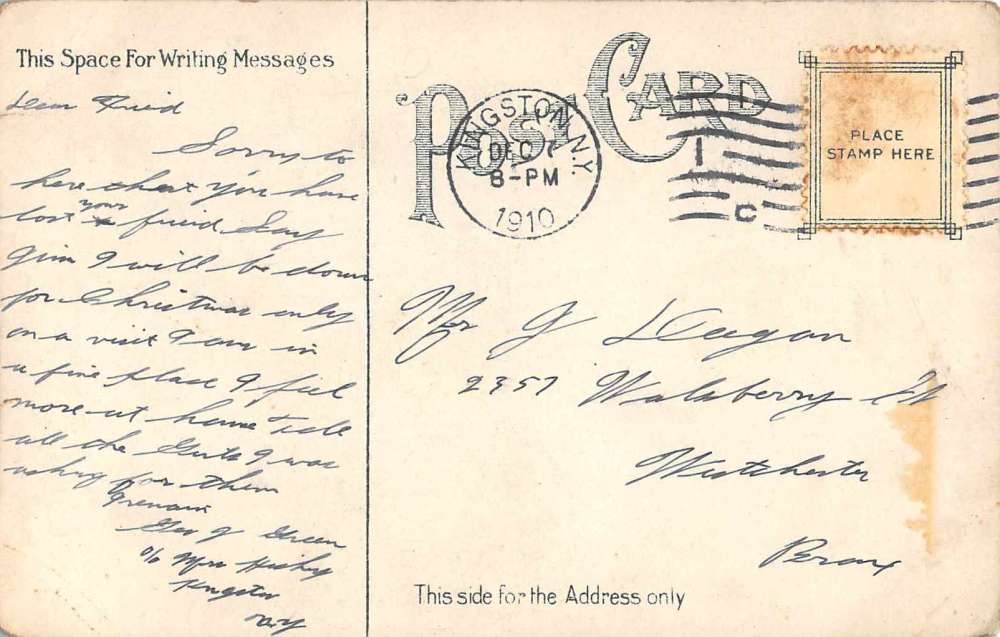 This Space For Writing Messages
Dear Freid
Sorry to
here that you have
lost your freid Say
Jim I will be down
for Christmas only
on a visit I am in
a fine place I feel
more at home Tell
all the Girls I was
asking for them
I remain
Geo J Green
c/o Mrs
Kingston
N.Y
POST CARD
KINGSTON, N.Y.
DEC 7
8-PM
1910
1
C
PLACE
STAMP HERE
Mr J Deegan
2357 Walsberry
Westchester
Bronx
This side for the Address only